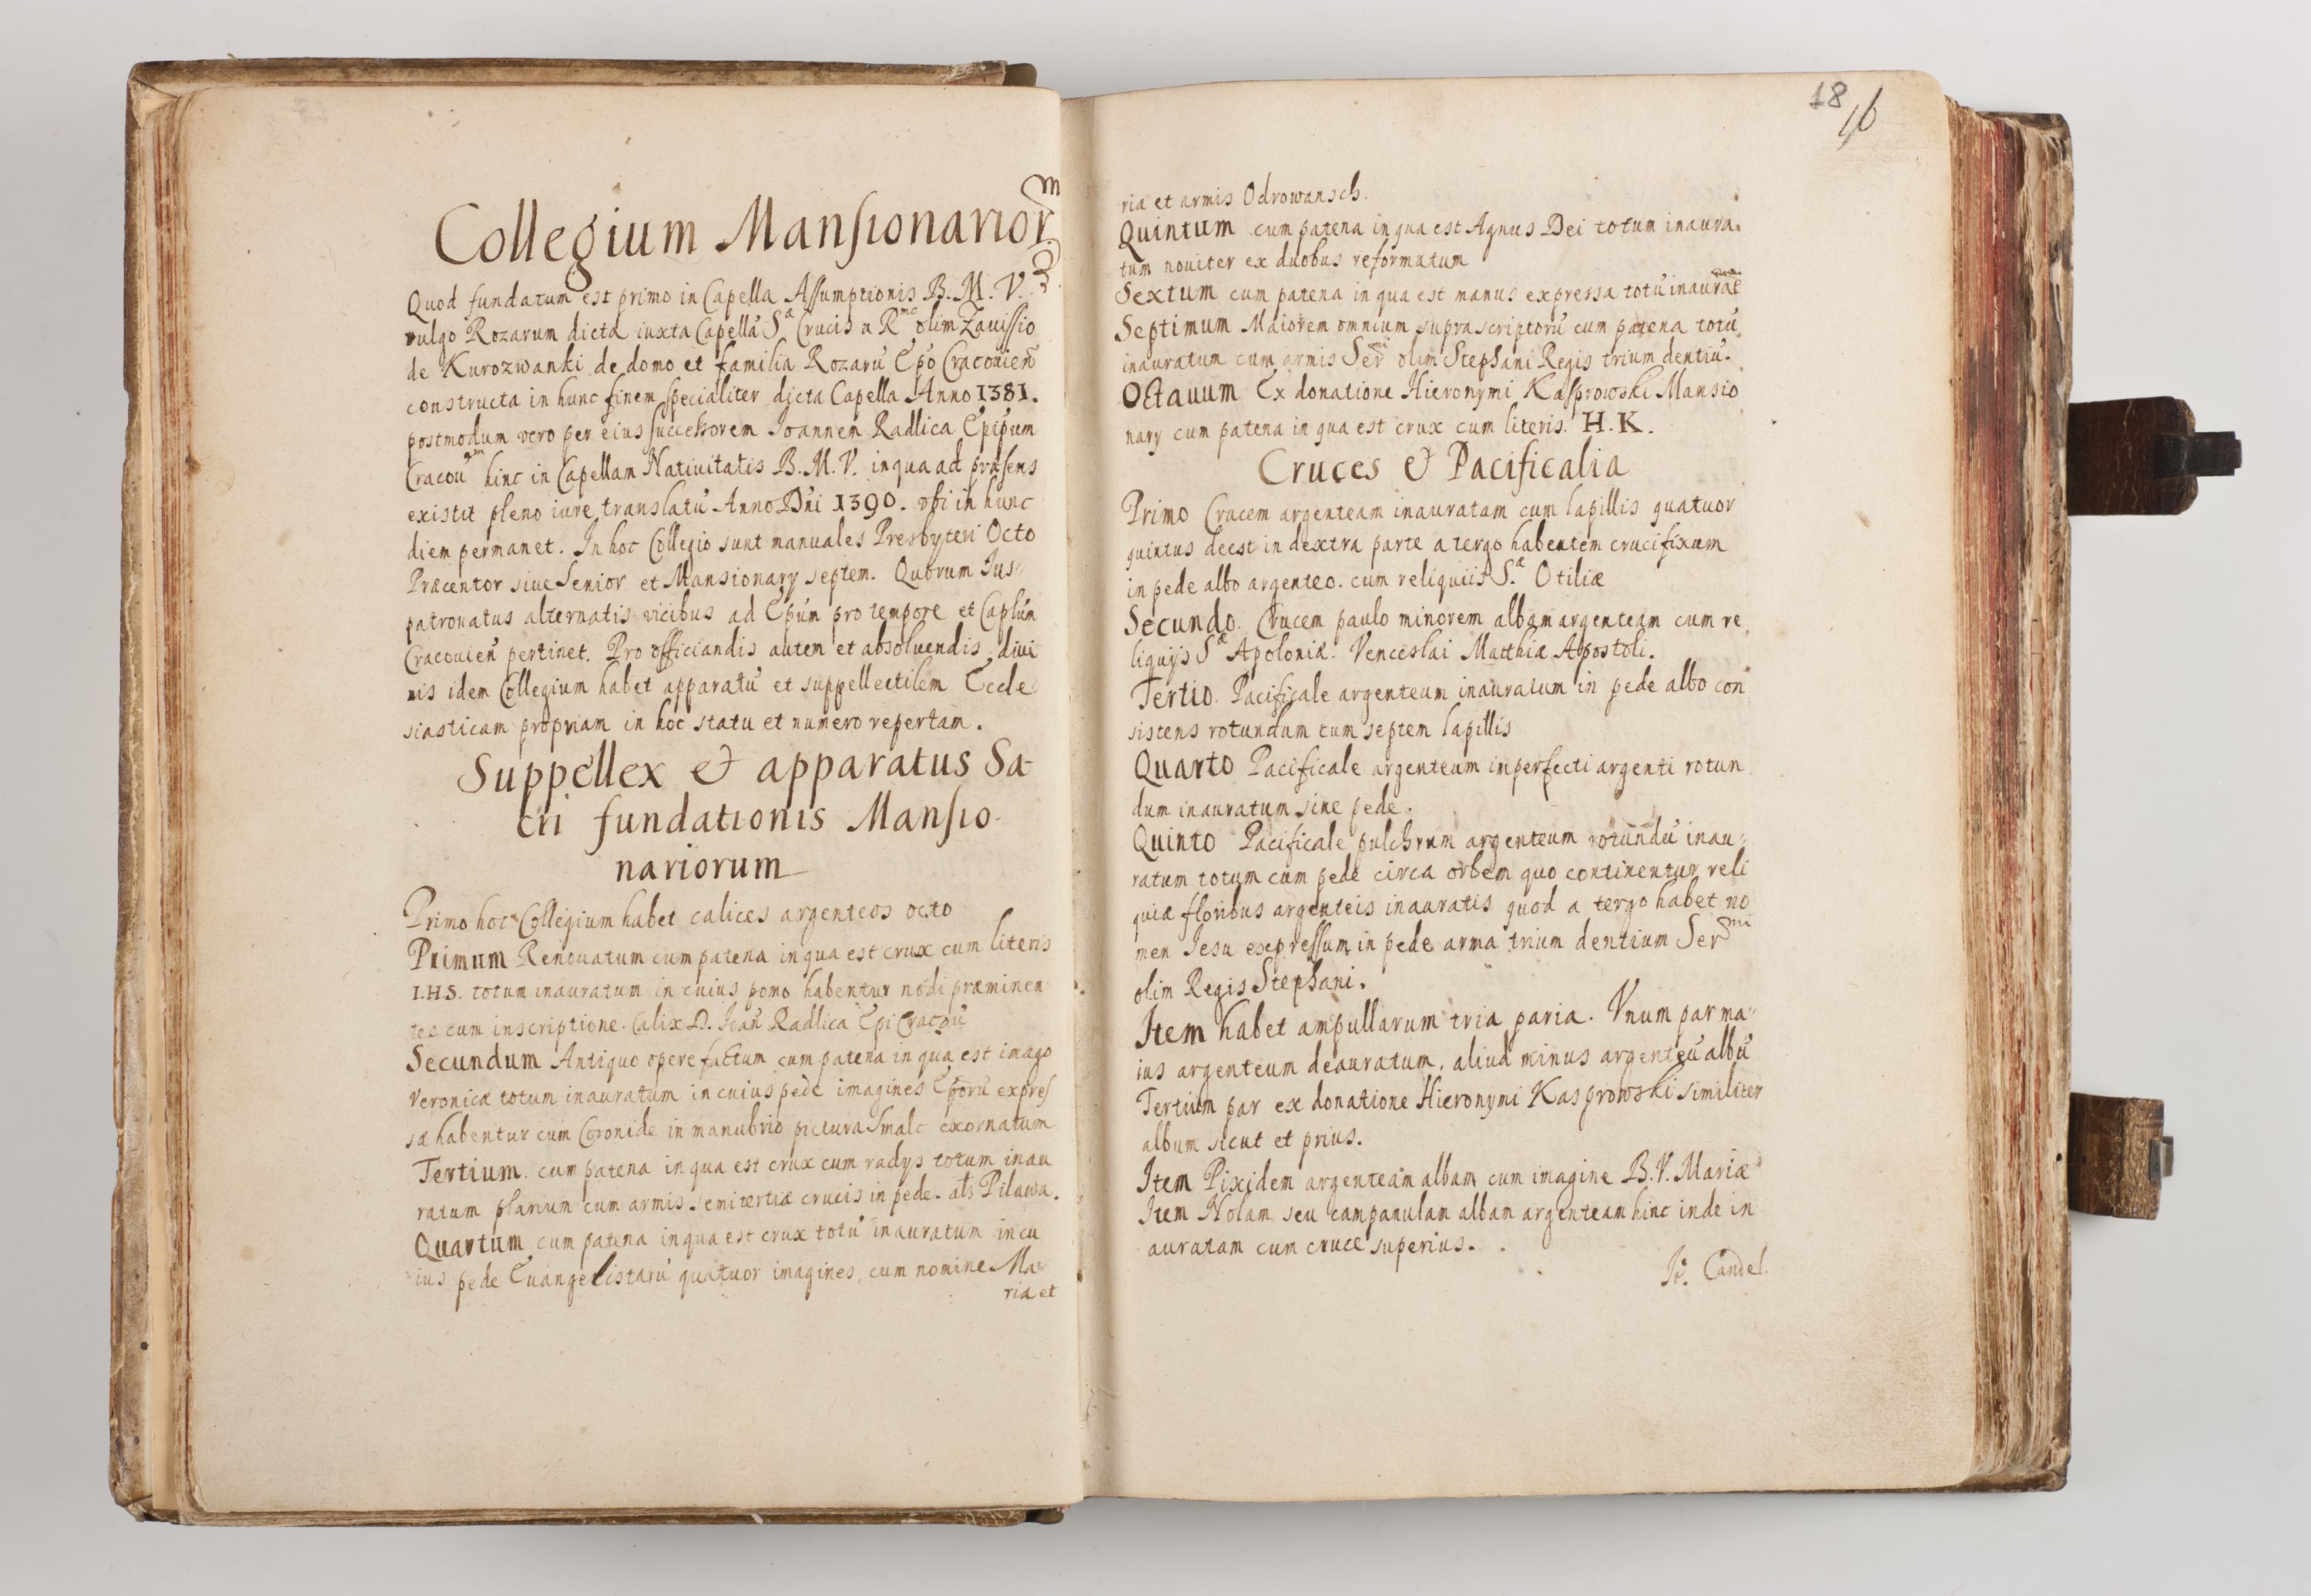 Collegium Mansionarior̃m
Quod fundatum est primo in Capella Assumptionis B. M. V.
vulgo Rozarum dicta iuxta Capellã Sᵃ Crucis a Rᵐᵒ olim Zauissio
de Kurozwanki de domo et familia Rozarũ Epõ Cracouieñ
constructa in hunc finem specialiter dicta Capella Anno 1381.
postmodum vero per eius successorem Joannem Radlica Epĩpum
Cracouᵉᵐ hinc in Capellam Natiuitatis B. M. V. in qua ad præsens
existit pleno iure translatũ Anno Dñi 1390. vbi in hunc
diem permanet. In hoc Collegio sunt manuales Presbyteri Octo
Præcentor siue Senior et Mansionarÿ septem. Quorum Jus
patronatus alternatis vicibus ad Epũm pro tempore et Caplũm
Cracouieñ pertinet. Pro officiandis autem et absoluendis diui
nis idem Collegium habet apparatũ et suppellectilem Eccle
siasticam propriam in hoc statu et numero repertam.
Suppellex & apparatus Sa-
cri fundationis Mansio-
nariorum
Primo hoc Collegium habet calices argenteos octo
Primum Renouatum cum patena in qua est crux cum literis
I.H.S. totum inauratum in cuius pomo habentur nodi præminen
tes cum inscriptione. Calix D. Joañ Radlica Epi Cracoũ
Secundum Antiquo opere factum cum patena in qua est imago
Veronicæ totum inauratum in cuius pede imagines Eporũ expres
sæ habentur cum Coronide in manubrio pictura Smalc exornatum
Tertium. cum patena in qua est crux cum radÿs totum inau
ratum planum cum armis semitertiæ crucis in pede. als Pilawa.
Quartum cum patena in qua est crux totũ inauratum in cu
ius pede Euangelistarũ quatuor imagines, cum nomine Ma-
ria et
18
16
ria et armis Odrowansch.
Quintum cum patena in qua est Agnus Dei totum inaura-
tum nouiter ex duobus reformatum
Sextum cum patena in qua est manus expressa totũ inaurat
Septimum Maiorem omnium suprascriptorũ cum patena totũ
inauratum cum armis Serᵐⁱ olim Stephani Regis trium dentiũ.
Octauum Ex donatione Hieronymi Kasprowski Mansio
narÿ cum patena in qua est crux cum literis. H. K.
Cruces & Pacificalia
Primo Crucem argenteam inauratam cum lapillis quatuor
quintus deest in dextra parte a tergo habentem crucifixum
in pede albo argenteo. cum reliquiis S.æ Otiliæ
Secundo. Crucem paulo minorem albam argenteam cum re
liquÿs Sæ Apoloniæ. Venceslai Matthiæ Apostoli.
Tertio. Pacificale argenteum inauratum in pede albo con
sistens rotundum cum septem lapillis
Quarto Pacificale argenteum inperfecti argenti rotun
dum inauratum sine pede.
Quinto Pacificale pulchrum argenteum rotundũ inau-
ratum totum cum pede circa orbem quo continentur reli
quiæ floribus argenteis inauratis quod a tergo habet no
men Iesu expressum in pede arma trium dentium Serᵐⁱ
olim Regis Stephani.
Item habet ampullarum tria paria. Vnum par ma-
ius argenteum deauratum, aliud minus argenteũ albũ
Tertium par ex donatione Hieronymi Kasprowski similiter
album sicut et prius.
Item Pixidem argenteam albam cum imagine B. V. Mariæ
Item Nolam seu campanulam albam argenteam hinc inde in
auratam cum cruce superius.
It. Candel.